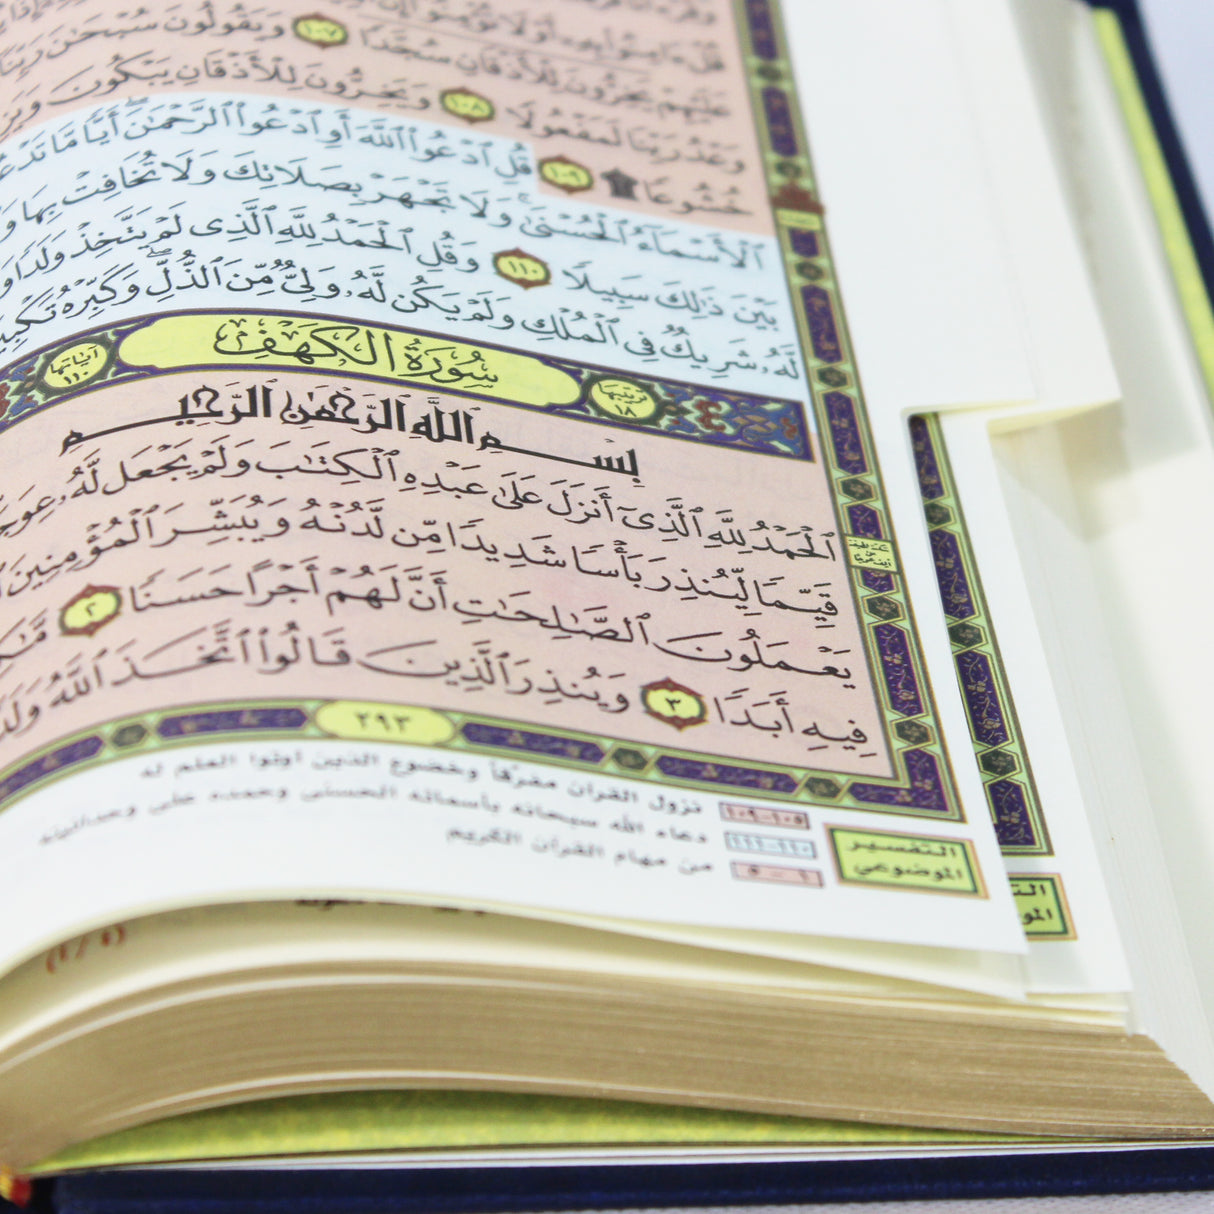 قُلْ ءَامِنُوا۟ بِهِۦٓ أَوْ لَا تُؤْمِنُوٓا۟ إِنَّ
عَلَيْهِمْ يَخِرُّونَ لِلْأَذْقَانِ سُجَّدًا ١٠٧ وَيَقُولُونَ سُبْحَٰنَ رَبِّنَآ إِن
وَعْدُ رَبِّنَا لَمَفْعُولًا ١٠٨ وَيَخِرُّونَ لِلْأَذْقَانِ يَبْكُونَ
خُشُوعًا ۩ ١٠٩ قُلِ ٱدْعُوا۟ ٱللَّهَ أَوِ ٱدْعُوا۟ ٱلرَّحْمَٰنَ ۖ أَيًّا مَّا
ٱلْأَسْمَآءُ ٱلْحُسْنَىٰ ۚ وَلَا تَجْهَرْ بِصَلَاتِكَ وَلَا تُخَافِتْ بِهَا
بَيْنَ ذَٰلِكَ سَبِيلًا ١١٠ وَقُلِ ٱلْحَمْدُ لِلَّهِ ٱلَّذِى لَمْ يَتَّخِذْ وَلَدًا
لَّهُۥ شَرِيكٌ فِى ٱلْمُلْكِ وَلَمْ يَكُن لَّهُۥ وَلِىٌّ مِّنَ ٱلذُّلِّ ۖ وَكَبِّرْهُ
ترتيبها ١٨ سُورَةُ الكَهْفِ آياتها ١١٠
بِسْمِ ٱللَّهِ ٱلرَّحْمَٰنِ ٱلرَّحِيمِ
ٱلْحَمْدُ لِلَّهِ ٱلَّذِىٓ أَنزَلَ عَلَىٰ عَبْدِهِ ٱلْكِتَٰبَ وَلَمْ يَجْعَل لَّهُۥ
قَيِّمًا لِّيُنذِرَ بَأْسًا شَدِيدًا مِّن لَّدُنْهُ وَيُبَشِّرَ ٱلْمُؤْمِنِينَ
يَعْمَلُونَ ٱلصَّٰلِحَٰتِ أَنَّ لَهُمْ أَجْرًا حَسَنًا ٢
فِيهِ أَبَدًا ٣ وَيُنذِرَ ٱلَّذِينَ قَالُوا۟ ٱتَّخَذَ ٱللَّهُ
٢٩٣
التفسير الموضوعي
١٠٥-١٠٩ نزول القرآن مفرقاً وخضوع الذين أوتوا العلم له
١١٠-١١١ دعاء الله سبحانه بأسمائه الحسنى وحمده على
١-٥ من مهام القرآن الكريم